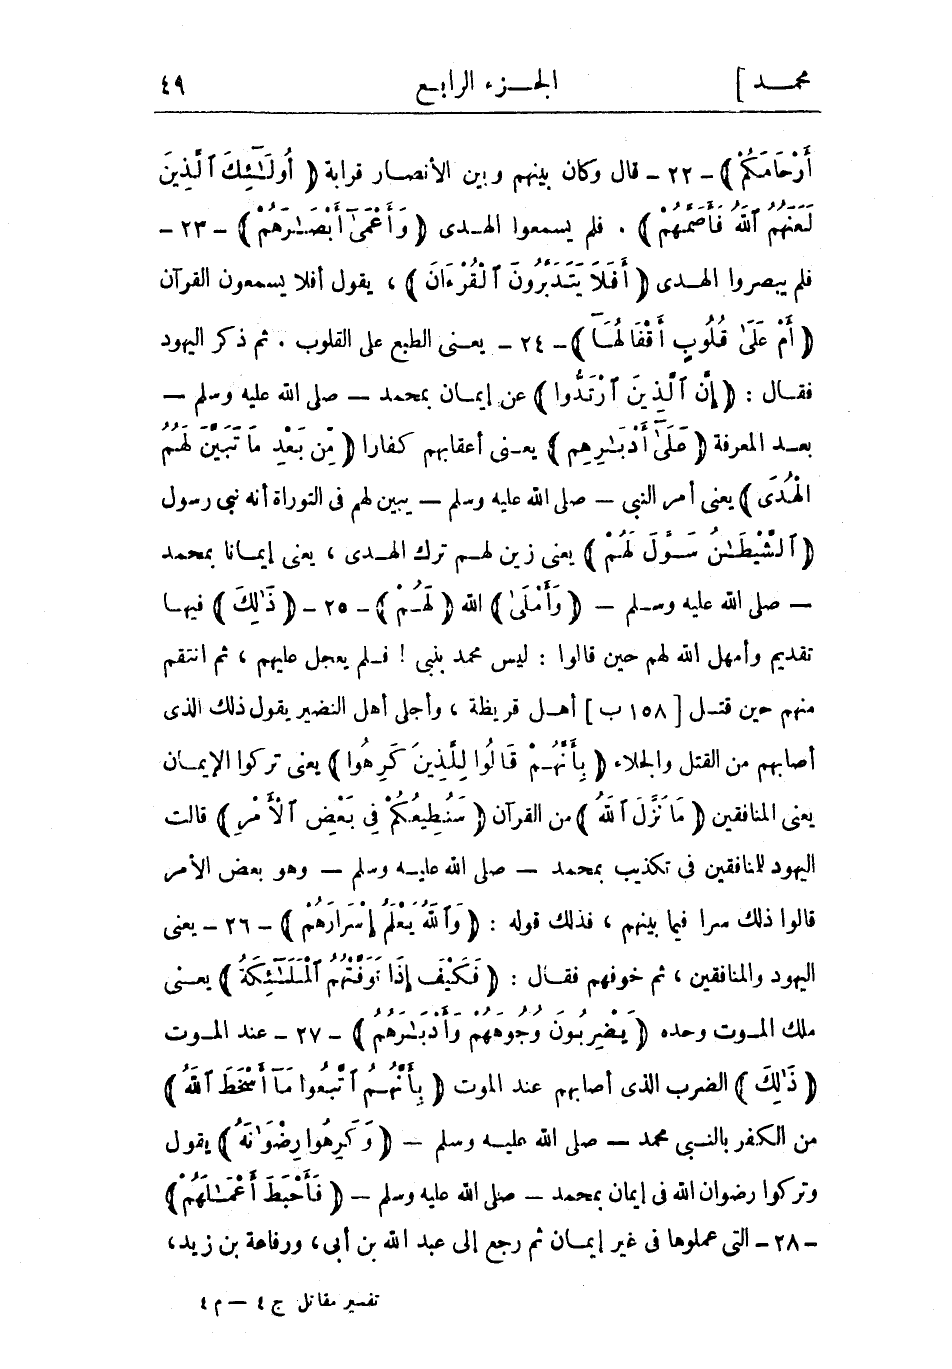 محمـــد ]
الجـــزء الرابـع
٤٩
أَرْحَامَكُمْ ﴾ - ٢٢ - قال وكان بينهم وبين الأنصـار قرابة ﴿ أُولَـٰٓئِكَ ٱلَّذِينَ
لَعَنَهُمُ ٱللَّهُ فَأَصَمَّهُمْ ﴾ . فلم يسمعوا الهـدى ﴿ وَأَعْمَىٰٓ أَبْصَـٰرَهُمْ ﴾ - ٢٣ -
فلم يبصروا الهـدى ﴿ أَفَلَا يَتَدَبَّرُونَ ٱلْقُرْءَانَ ﴾ ، يقول أفلا يسمعون القرآن
﴿ أَمْ عَلَىٰ قُلُوبٍ أَقْفَالُهَآ ﴾ - ٢٤ - يعـنى الطبع على القلوب . ثم ذكر اليهود
فقـال : ﴿ إِنَّ ٱلَّذِينَ ٱرْتَدُّوا ﴾ عن إيمـان بمحمد — صلى الله عليه وسلم —
بعـد المعرفة ﴿ عَلَىٰٓ أَدْبَـٰرِهِم ﴾ يعـنى أعقابهم كفارا ﴿ مِّن بَعْدِ مَا تَبَيَّنَ لَهُمُ
الْهُدَى ﴾ يعنى أمر النبى — صلى الله عليه وسلم — يبين لهم فى التوراة أنه نبى رسول
﴿ ٱلشَّيْطَـٰنُ سَوَّلَ لَهُمْ ﴾ يعنى زين لهـم ترك الهـدى ، يعنى إيمـانا بمحمد
— صلى الله عليه وسـلم — ﴿ وَأَمْلَىٰ ﴾ الله ﴿ لَهُـمْ ﴾ - ٢٥ - ﴿ ذَٰلِكَ ﴾ فيهـا
تقديم وأمهل الله لهم حين قالوا : ليس محمد بنبى ! فـلم يعجل عليهم ، ثم انتقم
منهم حين قتـل [ ١٥٨ ب ] أهـل قريظة ، وأجلى أهل النضير يقول ذلك الذى
أصابهم من القتل والجلاء ﴿ بِأَنَّهُـمْ قَالُوا لِلَّذِينَ كَرِهُوا ﴾ يعنى تركوا الإيمـان
يعنى المنافقين ﴿ مَا نَزَّلَ ٱللَّهُ ﴾ من القرآن ﴿ سَنُطِيعُكُمْ فِى بَعْضِ ٱلْأَمْرِ ﴾ قالت
اليهود للمنافقين فى تكذيب بمحمد — صلى الله عليـه وسلم — وهو بعض الأمر
قالوا ذلك سرا فيما بينهم ، فذلك قوله : ﴿ وَٱللَّهُ يَعْلَمُ إِسْرَارَهُمْ ﴾ - ٢٦ - يعنى
اليهود والمنافقين ، ثم خوفهم فقـال : ﴿ فَكَيْفَ إِذَا تَوَفَّتْهُمُ ٱلْمَلَـٰٓئِكَةُ ﴾ يعـنى
ملك المـوت وحده ﴿ يَضْرِبُونَ وُجُوهَهُمْ وَأَدْبَـٰرَهُمْ ﴾ - ٢٧ - عند المـوت
﴿ ذَٰلِكَ ﴾ الضرب الذى أصابهم عند الموت ﴿ بِأَنَّهُـمُ ٱتَّبَعُوا مَآ أَسْخَطَ ٱللَّهَ ﴾
من الكفر بالنـبى محمد — صلى الله عليـه وسلم — ﴿ وَكَرِهُوا رِضْوَٰنَهُ ﴾ يقول
وتركوا رضوان الله فى إيمان بمحمد — صلى الله عليه وسلم — ﴿ فَأَحْبَطَ أَعْمَـٰلَهُمْ ﴾
- ٢٨ - التى عملوها فى غير إيمـان ثم رجع إلى عبد الله بن أبى ، ورفاعة بن زيد ،
تفسير مقاتل ج ٤ — م ٤